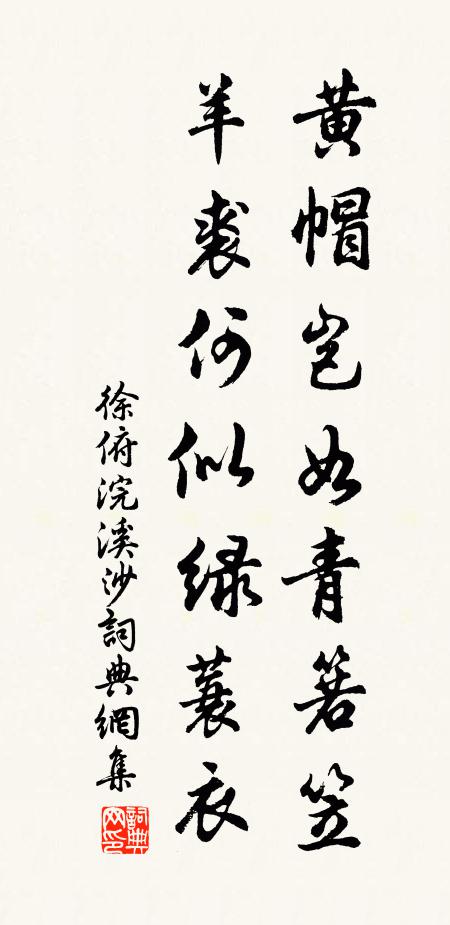 黄帽岂如青箬笠
羊裘何似绿蓑衣
徐俯浣溪沙詞典網集
詞典网印